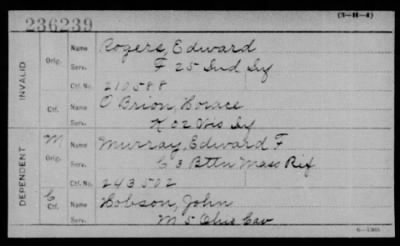 (3-H-4)
236239
INVALID
Orig. Name Rogers, Edward
Serv. F 25 Ind Inf
Ctf. No. 210588
Ctf. Name O'Brion, Horace
Serv. K 02 Wis Inf
DEPENDENT
M Orig. Name Murray, Edward F
Serv. C 3 Bttn Mass Rif
Ctf. No. 243502
C Ctf. Name Hobson, John
Serv. M 5 Ohio Cav